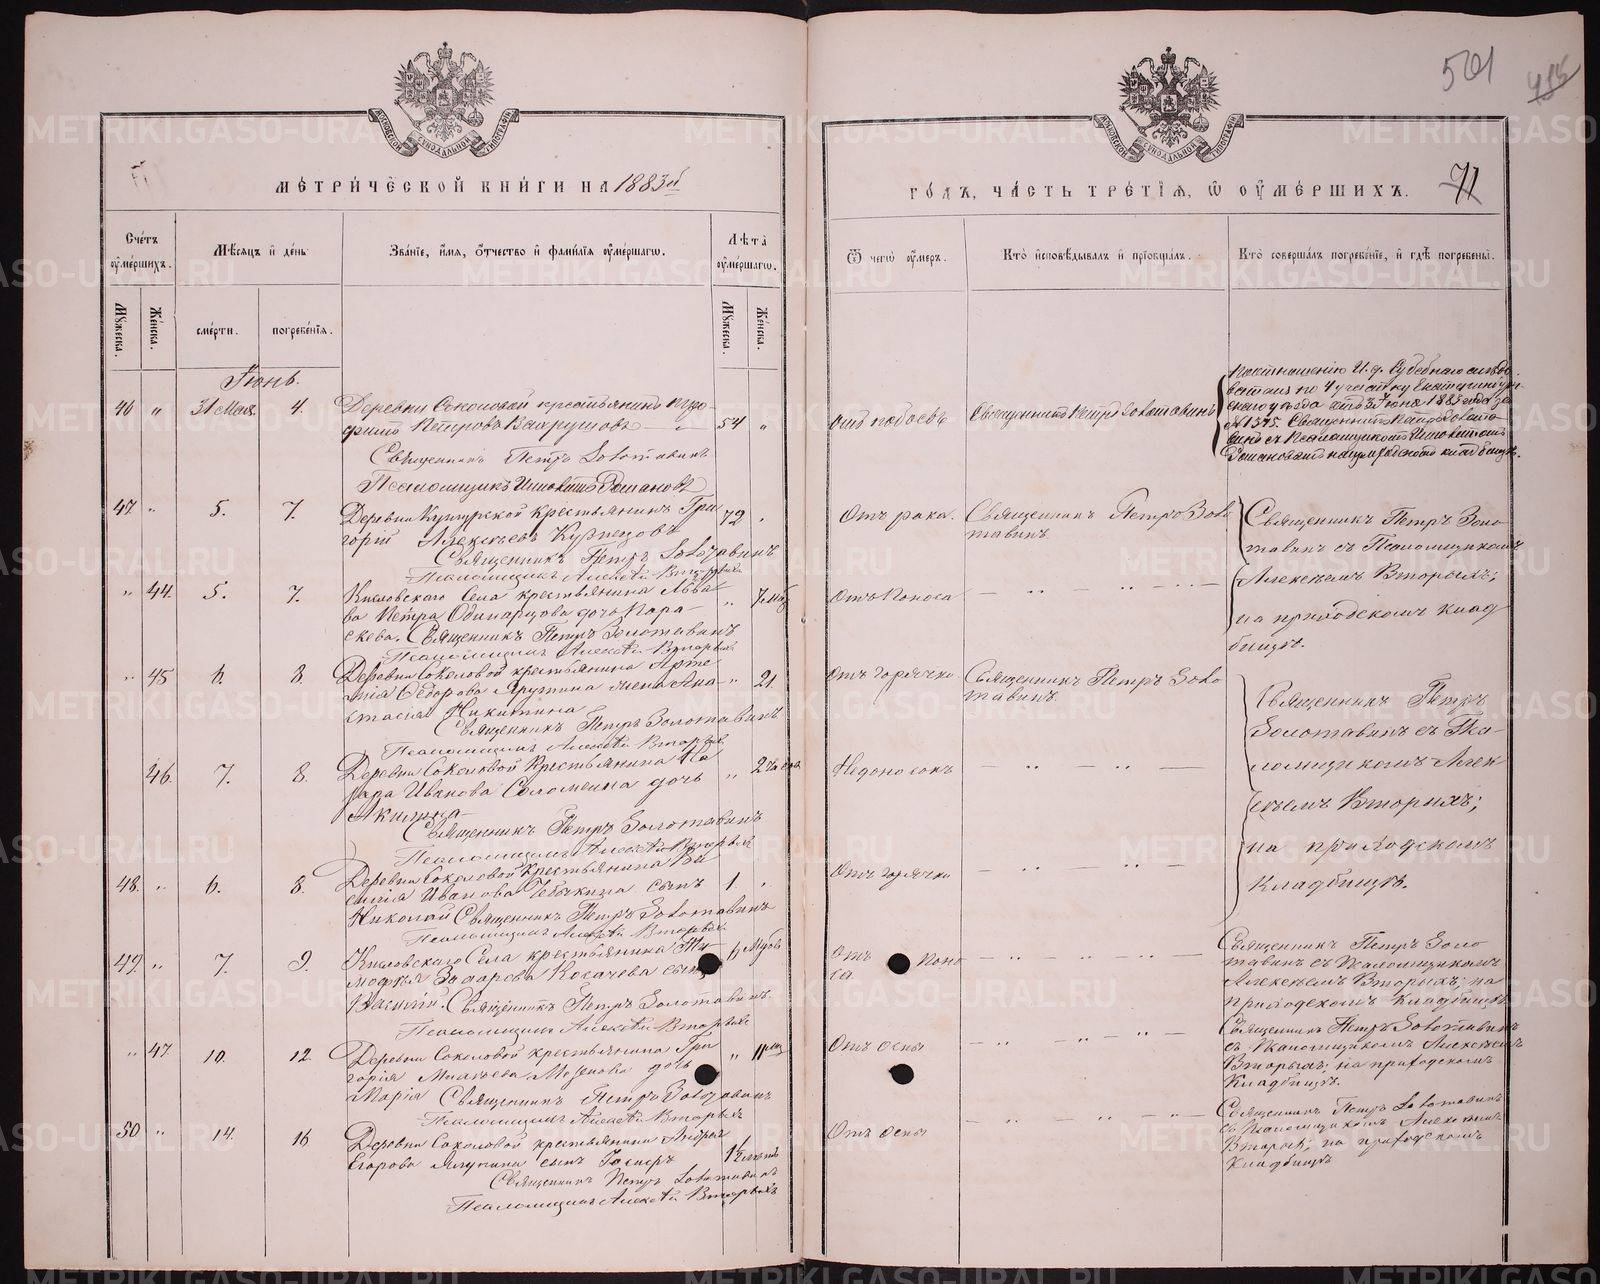 501
МЕТРИЧЕСКОЙ КНИГИ НА 1883й
ГОДЪ, ЧАСТЬ ТРЕТІЯ, Ѿ ОУМЕРШИХЪ.
71
Счетъ оумершихъ.
Мѣсяцъ и день
Званіе, имя, отчество и фамилія оумершагѡ.
Лѣта оумершагѡ.
Ѿ чегѡ оумеръ.
Кто исповѣдывалъ и пріобщалъ.
Кто совершалъ погребеніе, и гдѣ погребены.
Мужеска.
Женска.
смерти.
погребенія.
Мужеска.
Женска.
Іюнь.
46 " 31 Мая. 4.
Деревни Соколовой крестьянинъ
Петровъ Вахрушовъ 54 "
Священникъ Петръ Золотавинъ
Псаломщикъ
отъ побоевъ
Священникъ Петръ Золотавинъ
Екатеринбур-
скаго уѣзда отъ 3 Іюня 1883 года за
№ 1375. Священникъ
47 " 5. 7.
Деревни крестьянинъ Гри
горій Алексѣевъ Кузнецовъ 72 "
Священникъ Петръ Золотавинъ
Псаломщикъ Алексѣй Вторыхъ
Отъ рака.
Священникъ Петръ Золо
тавинъ.
Священникъ Петръ Золо
тавинъ съ Псаломщикомъ
Алексѣемъ Вторыхъ;
на приходскомъ клад
бищѣ.
" 44. 5. 7.
Кисловскаго Села крестьянина Савва
ва Петра Одинарцова дочь Пара-
скева. Священникъ Петръ Золотавинъ
Псаломщикъ Алексѣй Вторыхъ
Отъ Поноса
" 45 6. 8.
Деревни Соколовой крестьянина Арте
мія Ѳедорова Ярушина жена Ана- " 21.
стасія Никитина
Священникъ Петръ Золотавинъ
Псаломщикъ Алексѣй Вторыхъ
Отъ горячки
Священникъ Петръ Золо
тавинъ.
Священникъ Петръ
Золотавинъ съ Пса-
ломщикомъ Алек
сѣемъ Вторыхъ;
на приходскомъ
Кладбищѣ.
46. 7. 8.
Деревни Соколовой Крестьянина На
зара Иванова Соломеина дочь " 2 часа
Акилина
Священникъ Петръ Золотавинъ
Псаломщикъ Алексѣй Вторыхъ
Недоносокъ
48. " 6. 8.
Деревни Соколовой Крестьянина Ва
силія Иванова Чебыкина сынъ 1. "
Николай Священникъ Петръ Золотавинъ
Псаломщикъ Алексѣй Вторыхъ
Отъ горячки
49. " 7. 9.
Кисловскаго Села крестьянина Ти-
моѳея Захарова Косачева сынъ
Василій. Священникъ Петръ Золотавинъ.
Псаломщикъ Алексѣй Вторыхъ
Отъ поно
са
Священникъ Петръ Золо
тавинъ съ Псаломщикомъ
Алексѣемъ Вторыхъ; на
приходскомъ Кладбищѣ
" 47 10. 12.
Деревни Соколовой крестьянина Гри
горія дочь " 11 мѣс
Марія Священникъ Петръ Золотавинъ
Псаломщикъ Алексѣй Вторыхъ
Отъ оспы
Священникъ Петръ Золотавинъ
съ Псаломщикомъ Алексѣемъ
Вторыхъ; на приходскомъ
Кладбищѣ.
50 " 14. 16
Деревни Соколовой крестьянина Андрея
Егорова сынъ
Священникъ Петръ Золотавинъ
Псаломщикъ Алексѣй Вторыхъ
Отъ оспы
Священникъ Петръ Золотавинъ
съ Псаломщикомъ Алексѣемъ
Вторыхъ; на приходскомъ
Кладбищѣ
METRIKI.GASO-URAL.RU